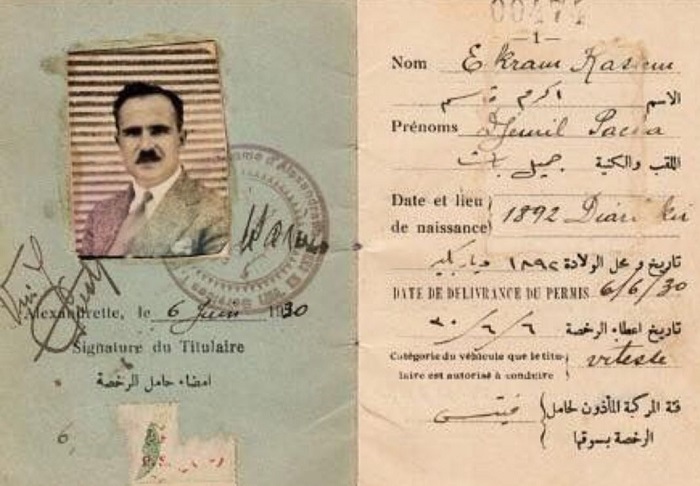 Alexandrette, le 6 Juin 1930
Signature du Titulaire
امضاء حامل الرخصة
6
00474
—1—
Nom Ekram Kasem
الاسم اكرم قاسم
Prénoms Djemil Pacha
اللقب والكنية جميل باشا
Date et lieu de naissance 1892 Diari
تاريخ و محل الولادة ١٨٩٢ دياربكير
DATE DE DELIVRANCE DU PERMIS 6/6/30
تاريخ اعطاء الرخصة ٦/٦/٣٠
Catégorie du véhicule que le titu-
laire est autorisé à conduire viteste
فئة المركبة المأذون لحامل
الرخصة بسوقها